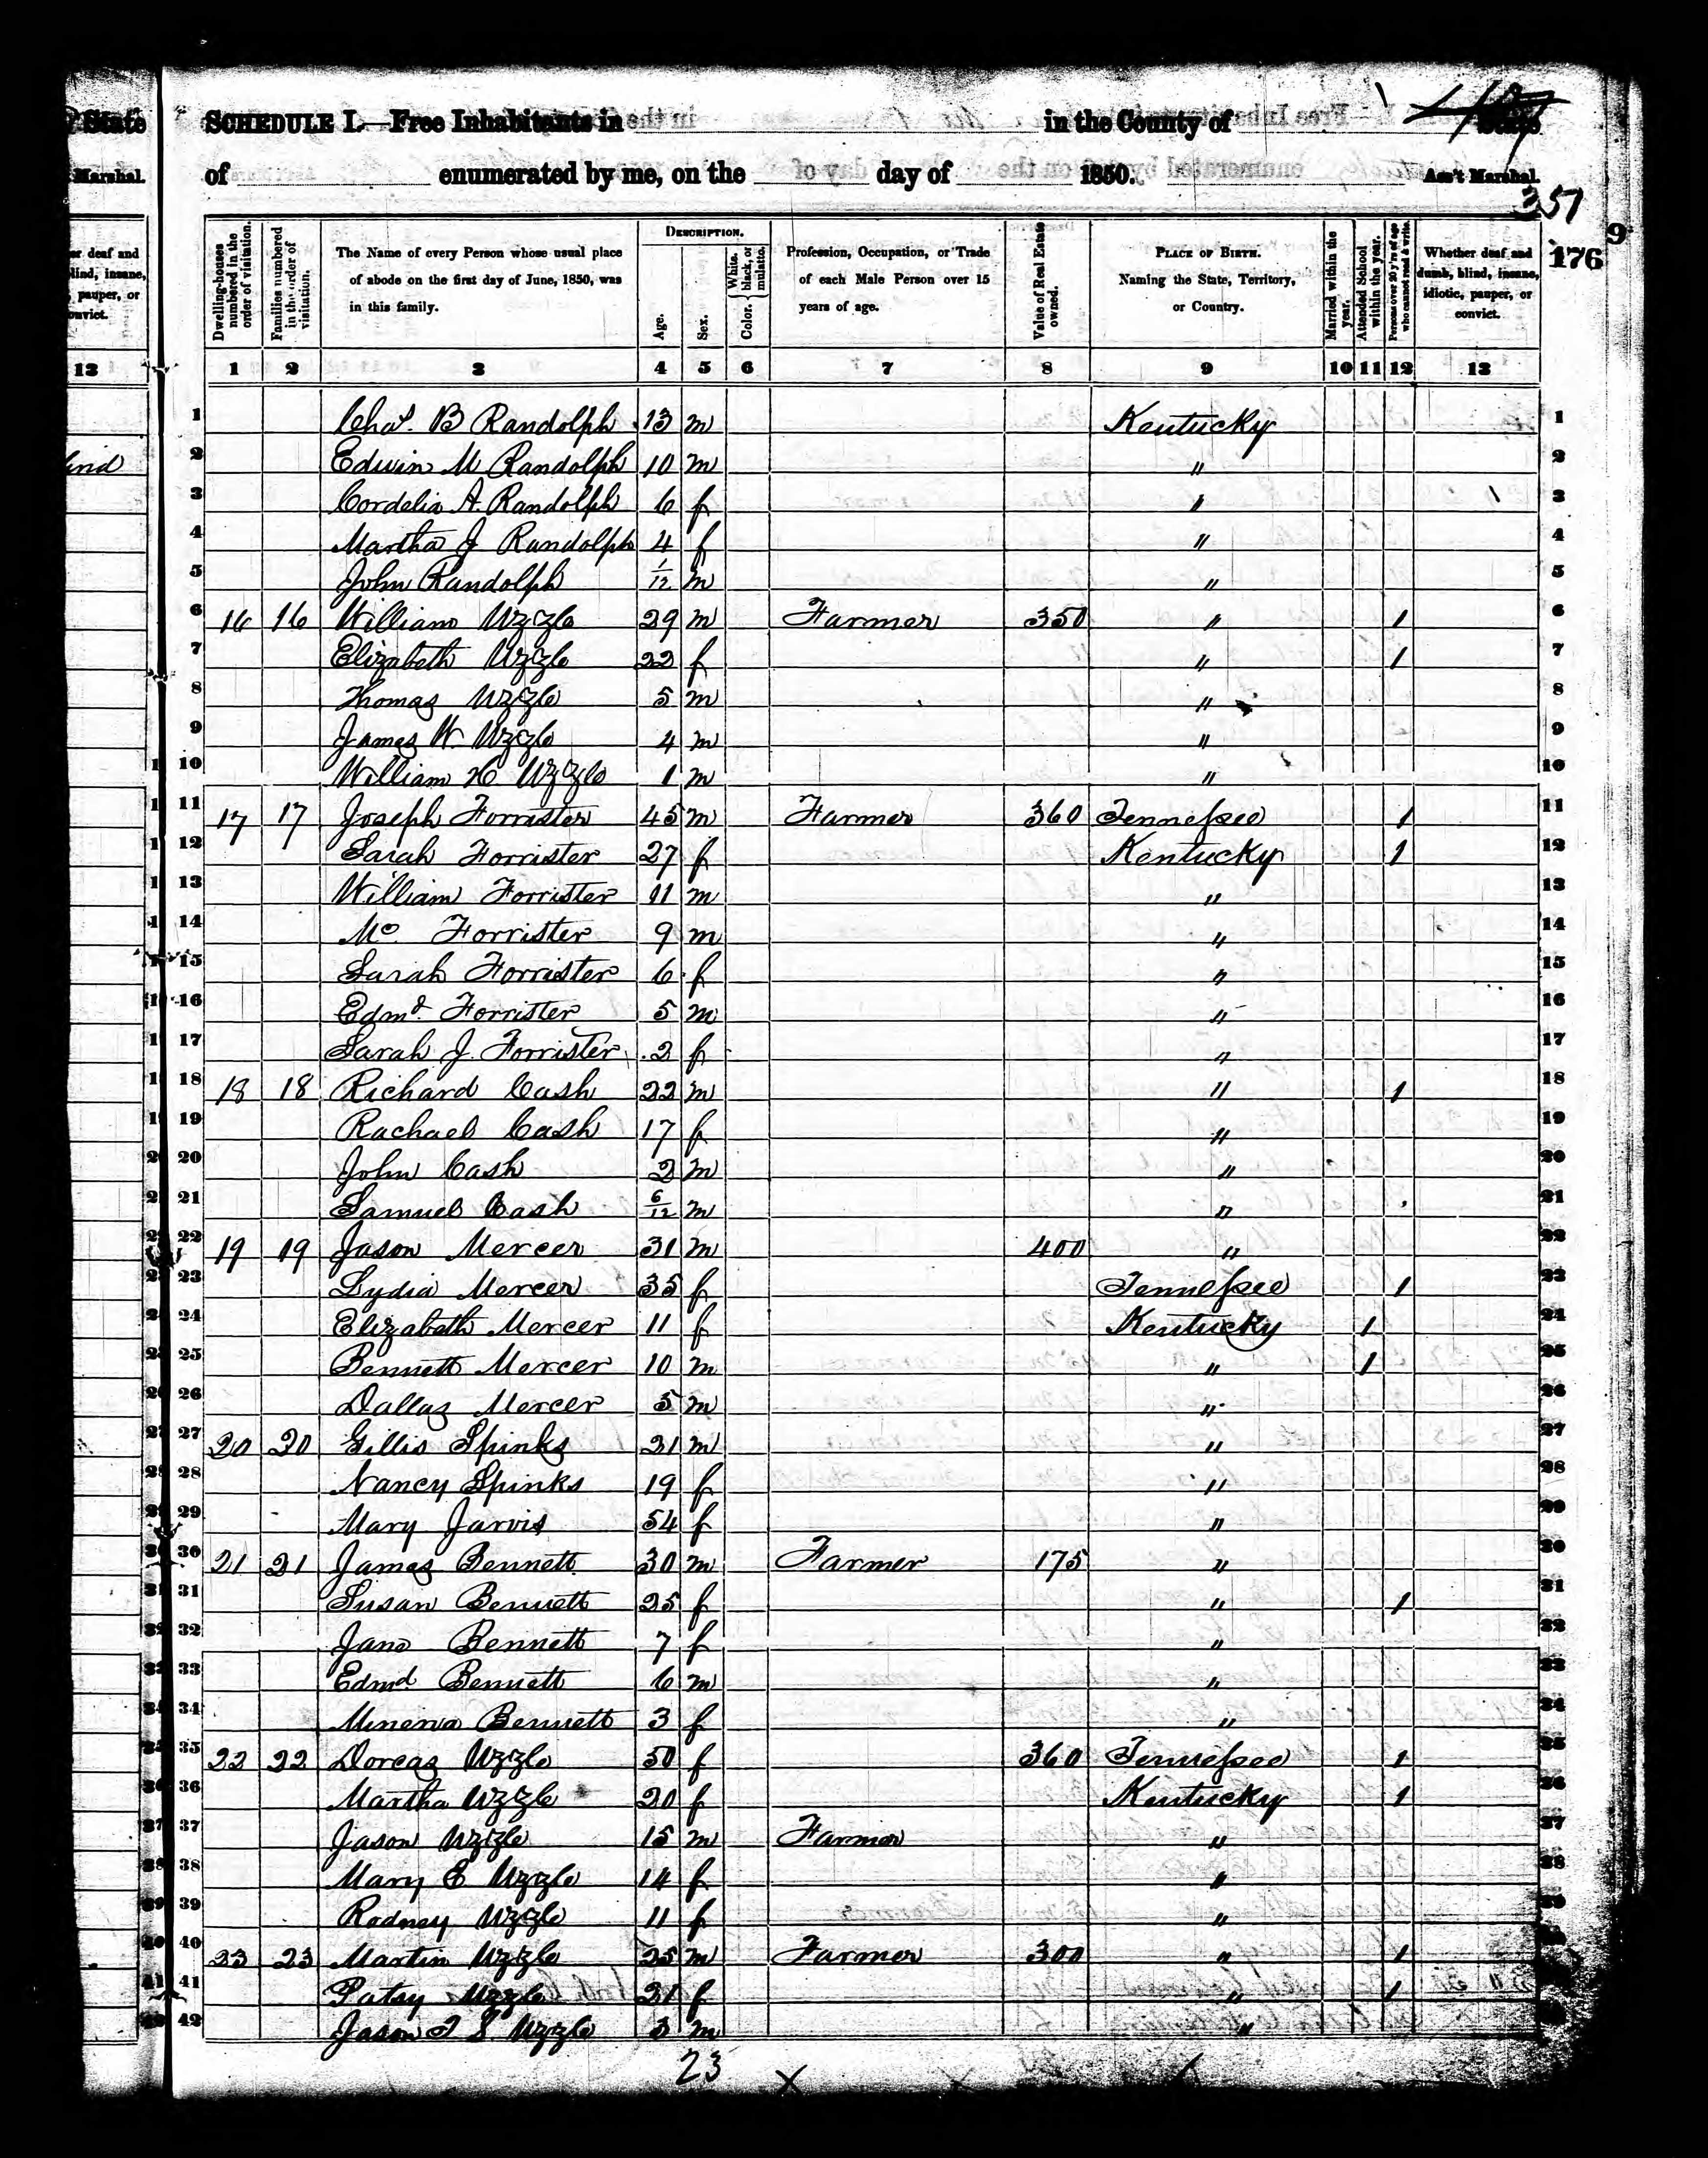 SCHEDULE I.—Free Inhabitants in in the County of State
of enumerated by me, on the day of 1850. Ass't Marshal.
357
176
Dwelling-houses numbered in the order of visitation.
Families numbered in the order of visitation.
The Name of every Person whose usual place of abode on the first day of June, 1850, was in this family.
DESCRIPTION.
Age.
Sex.
Color. White, black, or mulatto.
Profession, Occupation, or Trade of each Male Person over 15 years of age.
Value of Real Estate owned.
PLACE OF BIRTH. Naming the State, Territory, or Country.
Married within the year.
Attended School within the year.
Persons over 20 y'rs of age who cannot read & write.
Whether deaf and dumb, blind, insane, idiotic, pauper, or convict.
1 2 3 4 5 6 7 8 9 10 11 12 13
1 Chas. B Randolph 13 m Kentucky 1
2 Edwin M Randolph 10 m " 2
3 Cordelia A. Randolph 6 f " 3
4 Martha J Randolph 4 f " 4
5 John Randolph 1/12 m " 5
6 16 16 William Uzzle 29 m Farmer 350 " 1 6
7 Elizabeth Uzzle 22 f " 1 7
8 Thomas Uzzle 5 m " 8
9 James W. Uzzle 4 m " 9
10 William H. Uzzle 1 m " 10
11 17 17 Joseph Forrister 45 m Farmer 360 Tennessee 1 11
12 Sarah Forrister 27 f Kentucky 1 12
13 William Forrister 11 m " 13
14 Mc Forrister 9 m " 14
15 Sarah Forrister 6 f " 15
16 Edmd. Forrister 5 m " 16
17 Sarah J. Forrister 2 f " 17
18 18 18 Richard Cash 22 m " 1 18
19 Rachael Cash 17 f " 19
20 John Cash 2 m " 20
21 Samuel Cash 6/12 m " 21
22 19 19 Jason Mercer 31 m 400 " 22
23 Lydia Mercer 35 f Tennessee 1 23
24 Elizabeth Mercer 11 f Kentucky 1 24
25 Bennett Mercer 10 m " 1 25
26 Dallas Mercer 5 m " 26
27 20 20 Gillis Spinks 21 m " 27
28 Nancy Spinks 19 f " 28
29 Mary Jarvis 54 f " 29
30 21 21 James Bennett 30 m Farmer 175 " 30
31 Susan Bennett 25 f " 1 31
32 Jane Bennett 7 f " 32
33 Edmd Bennett 6 m " 33
34 Minerva Bennett 3 f " 34
35 22 22 Dorcas Uzzle 50 f 360 Tennessee 1 35
36 Martha Uzzle 20 f Kentucky 1 36
37 Jason Uzzle 15 m Farmer " 37
38 Mary E Uzzle 14 f " 38
39 Rodney Uzzle 11 f " 39
40 23 23 Martin Uzzle 25 m Farmer 300 " 1
41 Patsy Uzzle 21 f " 1
42 Jason T S. Uzzle 3 m "
23 x